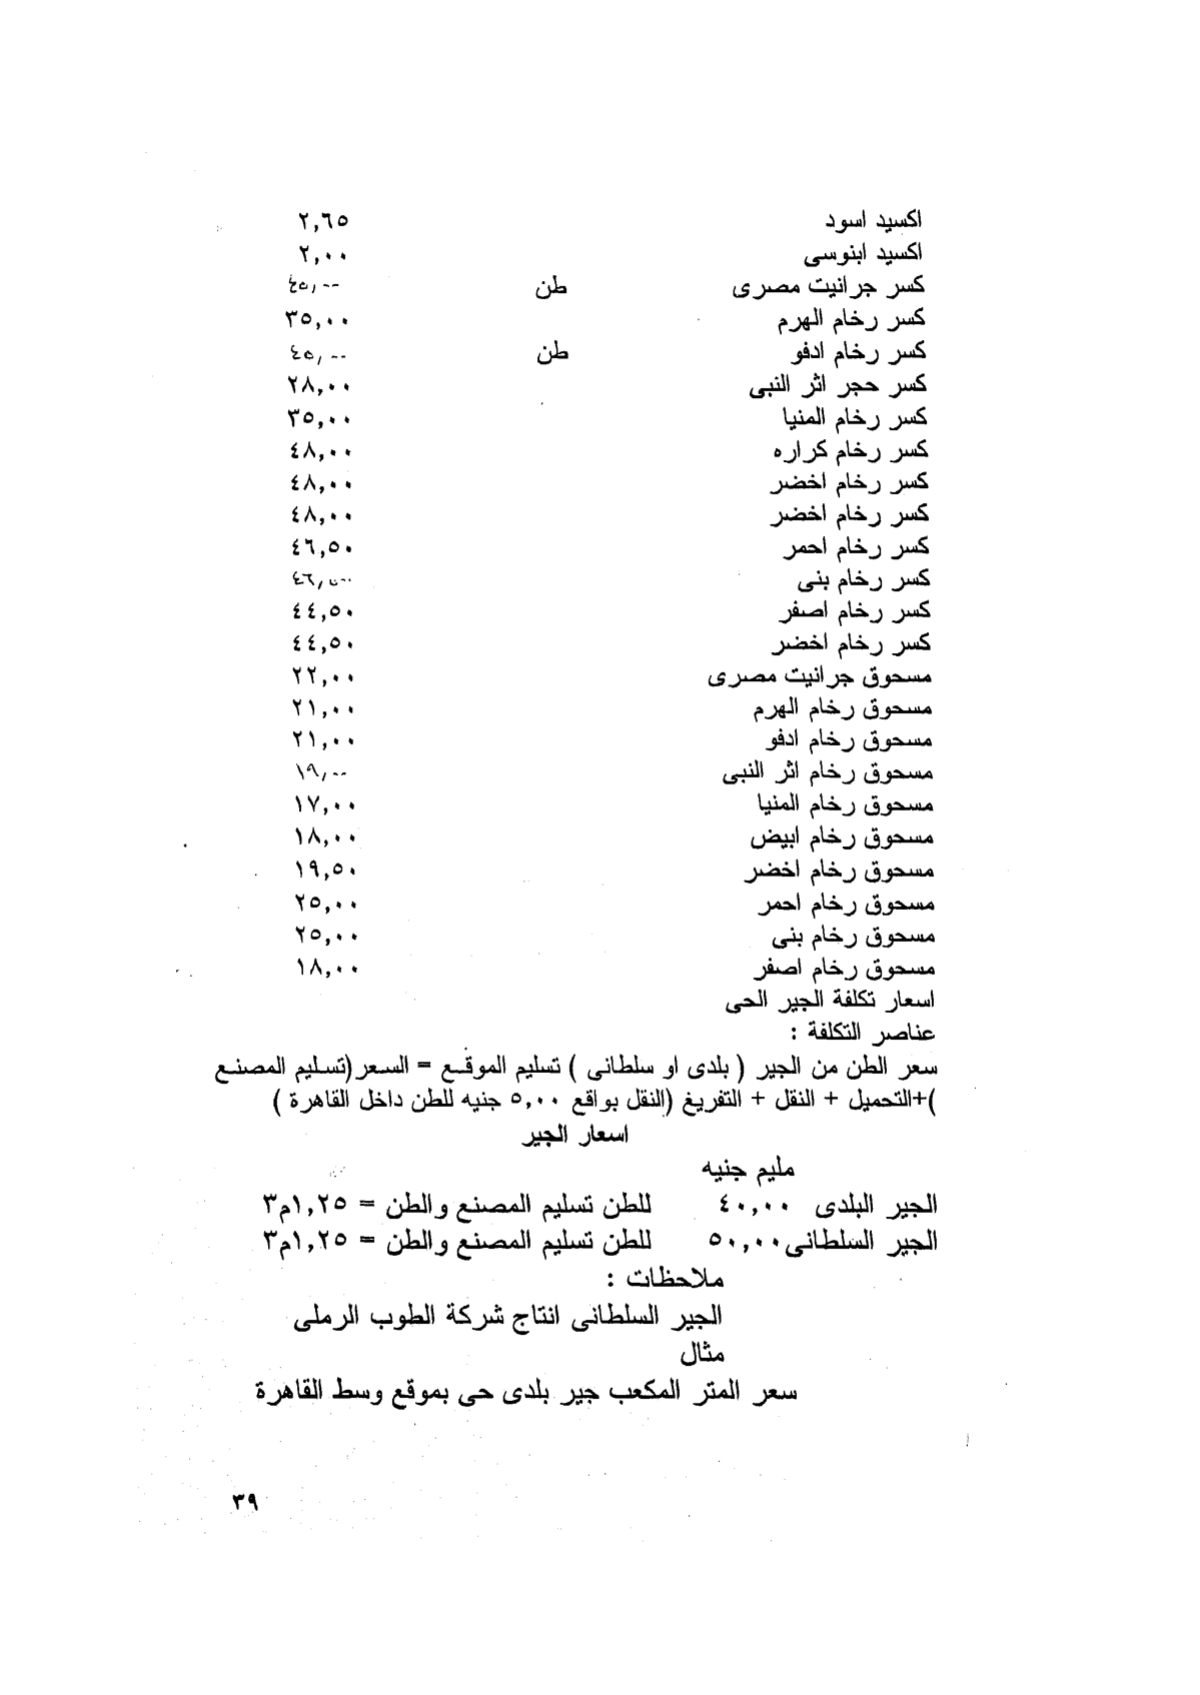 اكسيد اسود ٢,٦٥
اكسيد ابنوسى ٢,٠٠
كسر جرانيت مصرى طن ٤٥,٠٠
كسر رخام الهرم ٣٥,٠٠
كسر رخام ادفو طن ٤٥,٠٠
كسر حجر اثر النبى ٢٨,٠٠
كسر رخام المنيا ٣٥,٠٠
كسر رخام كراره ٤٨,٠٠
كسر رخام اخضر ٤٨,٠٠
كسر رخام اخضر ٤٨,٠٠
كسر رخام احمر ٤٦,٥٠
كسر رخام بنى ٤٦,٥٠
كسر رخام اصفر ٤٤,٥٠
كسر رخام اخضر ٤٤,٥٠
مسحوق جرانيت مصرى ٢٢,٠٠
مسحوق رخام الهرم ٢١,٠٠
مسحوق رخام ادفو ٢١,٠٠
مسحوق رخام اثر النبى ١٩,٠٠
مسحوق رخام المنيا ١٧,٠٠
مسحوق رخام ابيض ١٨,٠٠
مسحوق رخام اخضر ١٩,٥٠
مسحوق رخام احمر ٢٥,٠٠
مسحوق رخام بنى ٢٥,٠٠
مسحوق رخام اصفر ١٨,٠٠
اسعار تكلفة الجير الحى
عناصر التكلفة :
سعر الطن من الجير ( بلدى او سلطانى ) تسليم الموقع = السعر (تسليم المصنع
)+التحميل + النقل + التفريغ (النقل بواقع ٥,٠٠ جنيه للطن داخل القاهرة )
اسعار الجير
مليم جنيه
الجير البلدى ٤٠,٠٠ للطن تسليم المصنع والطن = ١,٢٥م٣
الجير السلطانى٥٠,٠٠ للطن تسليم المصنع والطن = ١,٢٥م٣
ملاحظات :
الجير السلطانى انتاج شركة الطوب الرملى
مثال
سعر المتر المكعب جير بلدى حى بموقع وسط القاهرة
٣٩